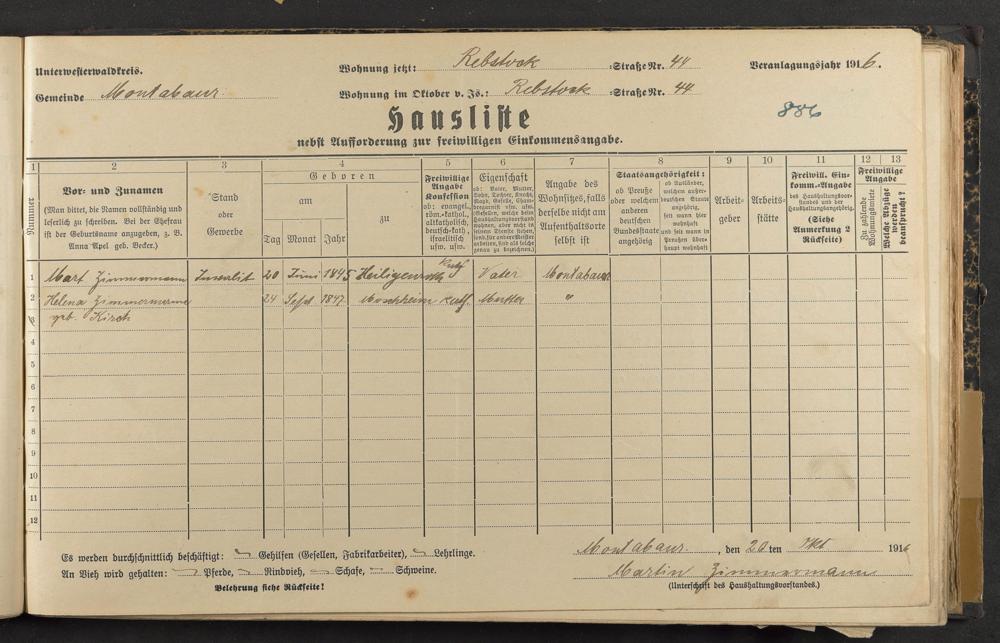 Unterwesterwaldkreis.
Wohnung jetzt: Rebstock =Straße Nr. 44
Veranlagungsjahr 1916.
Gemeinde Montabaur
Wohnung im Oktober v. Js.: Rebstock =Straße Nr. 44
886
Hausliste
nebst Aufforderung zur freiwilligen Einkommensangabe.
1 2 3 4 5 6 7 8 9 10 11 12 13
Nummer
Vor- und Zunamen
(Man bittet, die Namen vollständig und
leserlich zu schreiben. Bei der Ehefrau
ist der Geburtsname anzugeben, z. B.
Anna Apel geb. Becker.)
Stand
oder
Gewerbe
Geboren
am
zu
Tag Monat Jahr
Freiwillige
Angabe
Konfession
ob: evangel.,
röm.-kathol.,
altkatholisch,
deutsch-kath.,
israelitisch
usw. usw.
Eigenschaft
ob: Vater, Mutter,
Sohn, Tochter, Knecht,
Magd, Geselle, Chambregarnist usw. usw.
(Gesellen, welche beim
Haushaltungsvorstand
wohnen, aber nicht in
seinem Dienste stehen,
sind als solche
genau zu bezeichnen.)
Angabe des
Wohnsitzes, falls
derselbe nicht am
Aufenthaltsorte
selbst ist
Staatsangehörigkeit:
ob Preuße
oder welchem
anderen
deutschen
Bundesstaate
angehörig
ob Ausländer,
welchem außerdeutschen Staate
angehörig,
seit wann hier
wohnhaft
und seit wann in
Preußen überhaupt wohnhaft
Arbeitgeber
Arbeitsstätte
Freiwill. Einkomm.-Angabe
des Haushaltungsvorstandes und der
Haushaltungsangehörig.
(Siehe
Anmerkung 2
Rückseite)
Freiwillige
Angabe
Zu zahlende
Wohnungsmiete
Welche Abzüge
werden
beansprucht?
1 Mart Zimmermann Invalid 20 Juni 1845 Heiligenroth kath Vater Montabaur
2 Helena Zimmermann 24 Sept 1847 Moschheim kath. Mutter "
3 geb. Kirch
4
5
6
7
8
9
10
11
12
Es werden durchschnittlich beschäftigt: Gehilfen (Gesellen, Fabrikarbeiter), Lehrlinge.
An Vieh wird gehalten: Pferde, Rindvieh, Schafe, Schweine.
Belehrung siehe Rückseite!
Montabaur, den 20 ten Okt 1916
Martin Zimmermann
(Unterschrift des Haushaltungsvorstandes.)